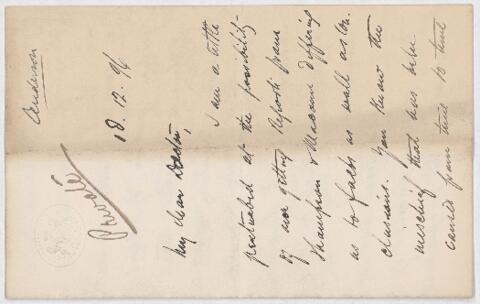 Anderson
Private
18.12.96
My dear Doctor,
I am a little
perturbed at the possibility
of our getting Reports from
Thompson & Macoun differing
as to facts as well as con-
clusions. You know the
mischief that has been
caused from time to time